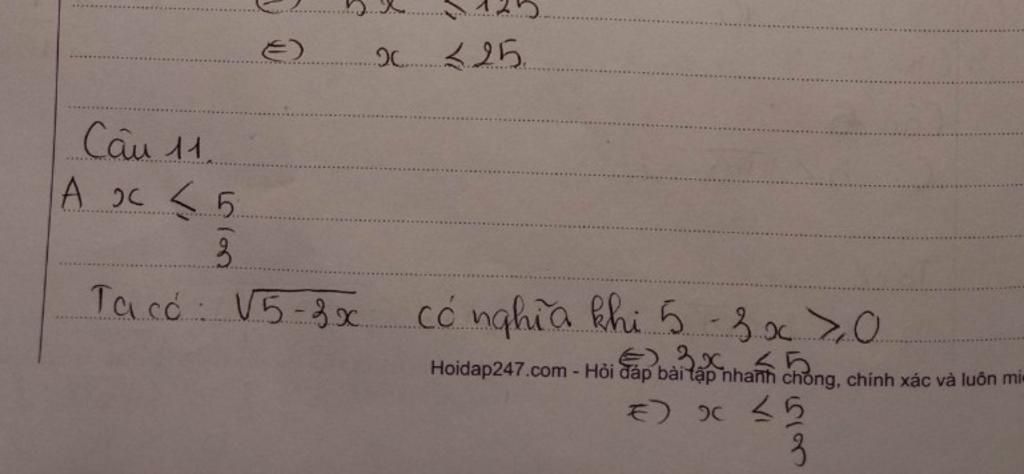 ⇔ 5x ≤ 125
⇔ x ≤ 25.
Câu 11.
A x ≤ 5/3
Ta có: √(5-3x) có nghĩa khi 5 - 3x ≥ 0
⇔ 3x ≤ 5
Hoidap247.com - Hỏi đáp bài tập nhanh chóng, chính xác và luôn mi
⇔ x ≤ 5/3